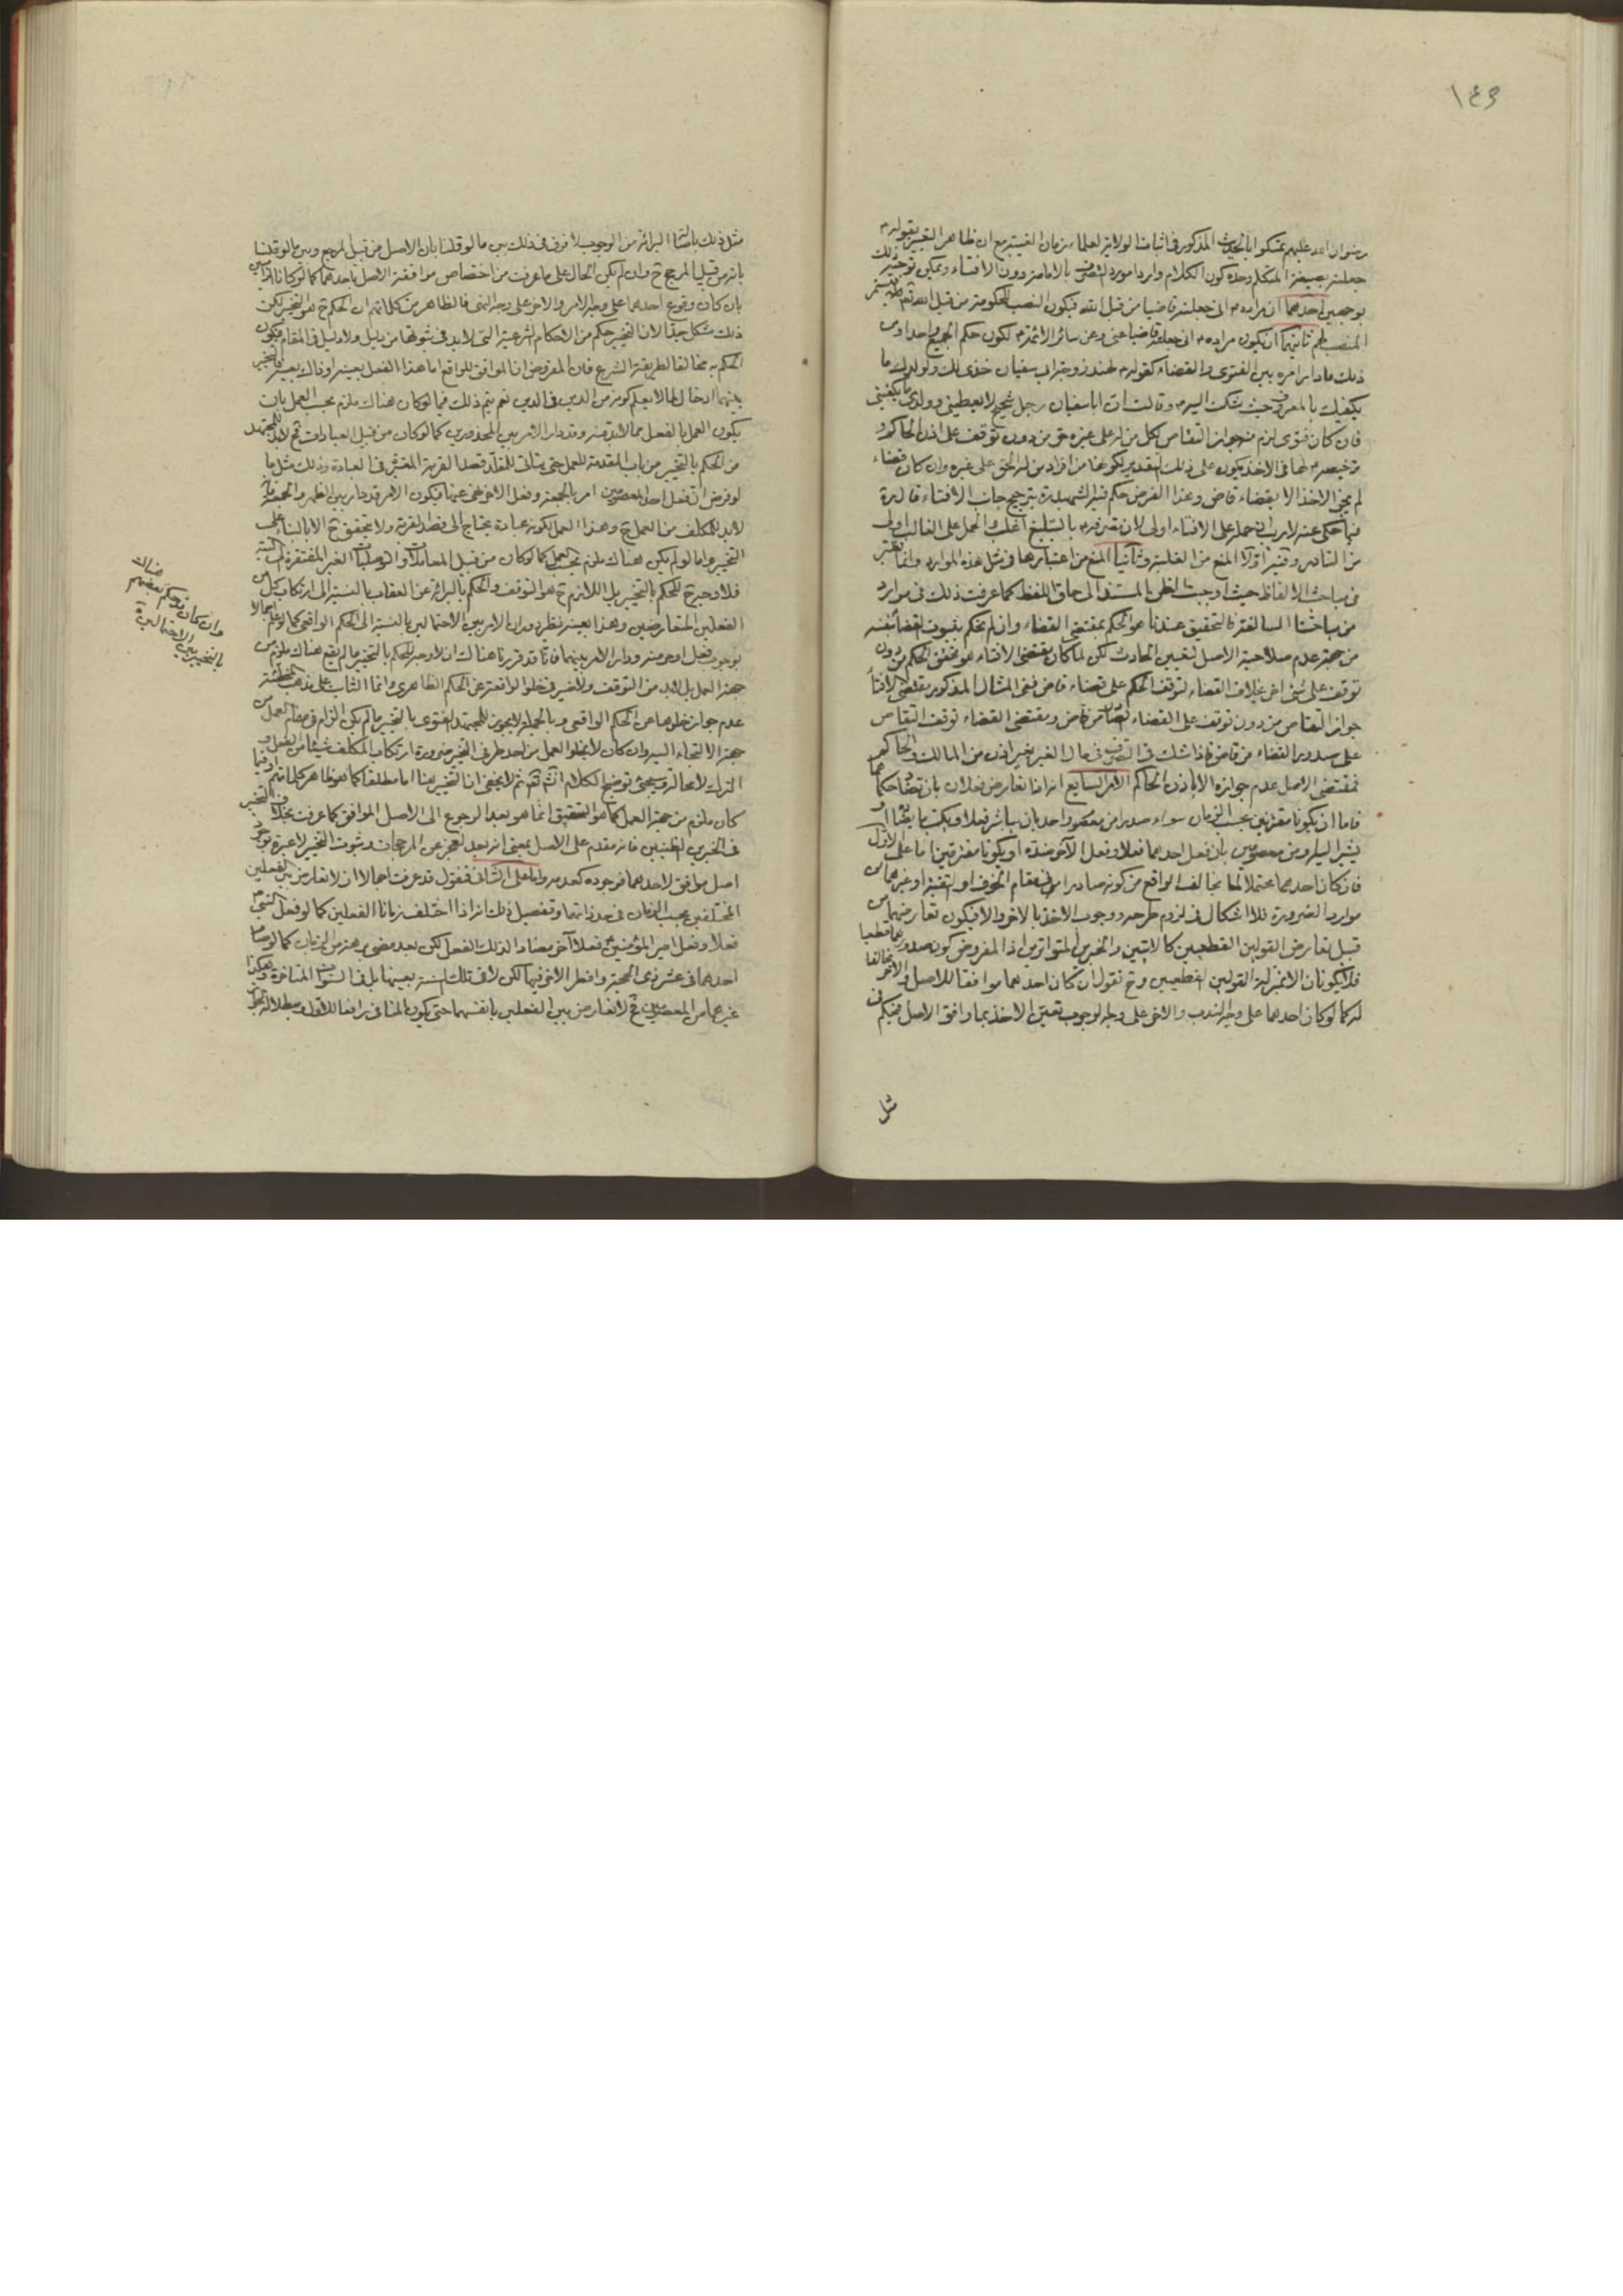 ١٤٣
رضوان الله عليهم تمسكوا بالحديث المذكور في اثباتنا لولاية العلماء زمان الغيبة مع ان ظاهر التعبير بقوله ع
جعلته بصيغة المتكلم وحده كون الكلام واردا مورد التصرف بالامامة دون الافتاء ويمكن توجيه ذلك
بوجهين احدهما ان مراده ع انى جعلته قاضيا من قبل الله فيكون النصب للحكومة من قبل الله تعم
المنصب لهم ثانيهما ان يكون مراده ع انى جعلته قاضيا عنى وعن سائر الائمة ع لكون حكم الجميع واحدا ومن
ذلك ما دار امره بين الفتوى والقضاء كقوله ع لهند زوجة ابى سفيان خذى لك ولولدك ما
يكفيك بالمعروف حيث شكت اليه ع وقالت ان ابا سفيان رجل شحيح لا يعطينى وولدى ما يكفينى
فان كان فتوى لزم منه جواز التقاص لكل من له على غيره حق من دون توقف على اذن الحاكم و
ترخيصه ع لها في الاخذ يكون على ذلك التقدير لكونها من افراد من له الحق على غيره وان كان قضاء
لم يجز الاخذ الا بقضاء قاض وهذا الفرض حكم فيه الشهيد ره بترجيح جانب الافتاء قال ره
فيما حكى عنه لا ريب ان حمله على الافتاء اولى لان تصرفه ع بالتبليغ اغلب والحمل على الغالب اولى
من النادر وفيه اولا المنع من الغلبة وثانيا المنع من اعتبارها في مثل هذه الموارد وانما تعتبر
في مباحث الالفاظ حيث اوجبت الظن المستند الى حاق اللفظ كما عرفت ذلك في موارد
من مباحثنا السالفة فالتحقيق عندنا هو الحكم بمقتضى القضاء وان لم نحكم بثبوت القضاء بنفسه
من جهة عدم صلاحية الاصل لتعيين الحادث لكن لما كان مقتضى الافتاء هو تحقق الحكم من دون
توقف على شئ اخر بخلاف القضاء لتوقف الحكم على قضاء قاض ففى المثال المذكور مقتضى الافتاء
جواز التقاص من دون توقف على القضاء من قاض ومقتضى القضاء توقف التقاص
على صدور القضاء من قاض فاذا شك في التصرف في مال الغير بغير اذن من المالك والحاكم
فمقتضى الاصل عدم جوازه الا باذن الحاكم الامر السابع انه اذا تعارض فعلان بان تضاد حكماهما
فاما ان يكونا مقترنين بحسب الزمان سواء صدرا من معصوم واحد بان يباشر فعلا ويكتب ما يضاد او
يشير اليه او من معصومين بان فعل احدهما فعلا وفعل الآخر ضده او يكونا مفترقين اما على الاول
فان كان احدهما محتملا لما يخالف الواقع من كونه صادرا في مقام الخوف او التقية او غيرهما من
موارد الضرورة فلا اشكال في لزوم طرحه ووجوب الاخذ بالاخر والا فيكون تعارضهما من
قبيل تعارض القولين القطعيين كالايتين والخبرين المتواترين اذا المفروض كون صدورهما قطعيا
فلا يكونان الا بمنزلة القولين القطعيين وح نقول ان كان احدهما موافقا للاصل والاخر مخالفا
له كما لو كان احدهما على وجه الندب والاخر على وجه الوجوب تعين الاخذ بما وافق الاصل فيحكم في
مثل
مثل ذلك باثبات البرائة من الوجوب لا فرق في ذلك بين ما لو قلنا بان الاصل من قبيل المرجح وبين ما لو قلنا
بانه من قبيل المرجع ح وان لم يكن الحال على ما عرفت من اختصاص موافقة الاصل باحدهما كما لو كانا
بان كان وقوع احدهما على وجه الامر والاخر على وجه النهى فالظاهر من كلماتهم ان الحكم ح هو التخيير لكن
ذلك مشكل جدا لان التخيير حكم من الاحكام الشرعية التى لا بد في ثبوتها من دليل ولا دليل في المقام فيكون
الحكم به مخالفا لطريقة الشرع فان المفروض ان الموافق للواقع اما هذا الفعل بعينه او ذاك بعينه فالتخيير
بينهما ادخال لما لا يعلم كونه من الدين في الدين نعم يتم ذلك فيما لو كان هناك ملزم بحسب العمل بان
يكون العمل بالفعل مما لا بد منه وقد دار الامر بين المحذورين كما لو كان من قبيل العبادات فح لا بد للمجتهد
من الحكم بالتخيير من باب المقدمة للعمل حتى يتاتى للمقلد قصد القربة المعتبر في العبادة وذلك مثل ما
لو فرض ان فعل احد المعصومين امر بالجمعة وفعل الاخر نهى عنها فيكون الامر قد دار بين الظهر والجمعة
لا بد للمكلف من العمل ح وهذا العمل لكونه عبادة يحتاج الى قصد القربة ولا يتحقق ح الا بالبناء على
التخيير واما لو لم يكن هناك ملزم بحسب العمل كما لو كان من قبيل المعاملات والتوصليات الغير المفتقرة الى النية
فلا وجه ح للحكم بالتخيير بل اللازم ح هو التوقف والحكم بالبرائة عن العقاب بالنسبة الى ارتكاب كل من
الفعلين المتعارضين وهذا بعينه نظير دوران الامر بين الاحتمالين بالنسبة الى الحكم الواقعى كما لو علم اجمالا
بوجوب فعل او حرمته ودار الامر بينهما فانا قد قررنا هناك ان لا وجه للحكم بالتخيير ما لم يقع هناك ملزم من
جهة العمل بل لا بد من التوقف ولا ضير في خلو الواقعة عن الحكم الظاهرى وانما الثابت على مذهب المخطئة
عدم جواز خلوها عن الحكم الواقعى وبالجملة لا يجوز للمجتهد الفتوى بالتخيير ما لم يكن الزام في مقام العمل من
جهة الالتجاء اليه وان كان لا يخلو العمل من احد طرفى التخيير ضرورة ارتكاب المكلف شيئا من الفعل و
الترك لا محالة وسيجئ توضيح الكلام انش تعم ثم لا يخفى ان التخيير هنا اما مطلقا كما هو ظاهر كلماتهم او فيما
كان ملزم من جهة العمل كما هو التحقيق انما هو بعد الرجوع الى الاصل الموافق كما عرفت بخلاف التخيير
في الخبرين الظنيين فانه مقدم على الاصل بمعنى انه بعد العجز عن المرجحات وثبوت التخيير لا عبرة بوجود
اصل موافق لاحدهما فوجوده كعدمه واما على الثانى فنقول قد عرفت اجمالا ان لا تعارض بين الفعلين
المختلفين بحسب الزمان في حد ذاتهما وتفصيل ذلك انه اذا اختلف زمانا الفعلين كما لو فعل النبى ص
فعلا وفعل امير المؤمنين ع فعلا آخر مضادا لذلك الفعل لكن بعد مضى برهة من الزمان كما لو صام
احدهما في عشر ذى الحجة وافطر الاخر فيها لكن لا في تلك السنة بعينها بل في السنوات المتاخرة وهكذا
غيرهما من المعصومين ع فح لا تعارض بين الفعلين بانفسهما حتى يكون الثانى رافعا للاول ومبطلا له
هناك
وان كان قد حكم بعضهم
بالتخيير بين الاحتمالين